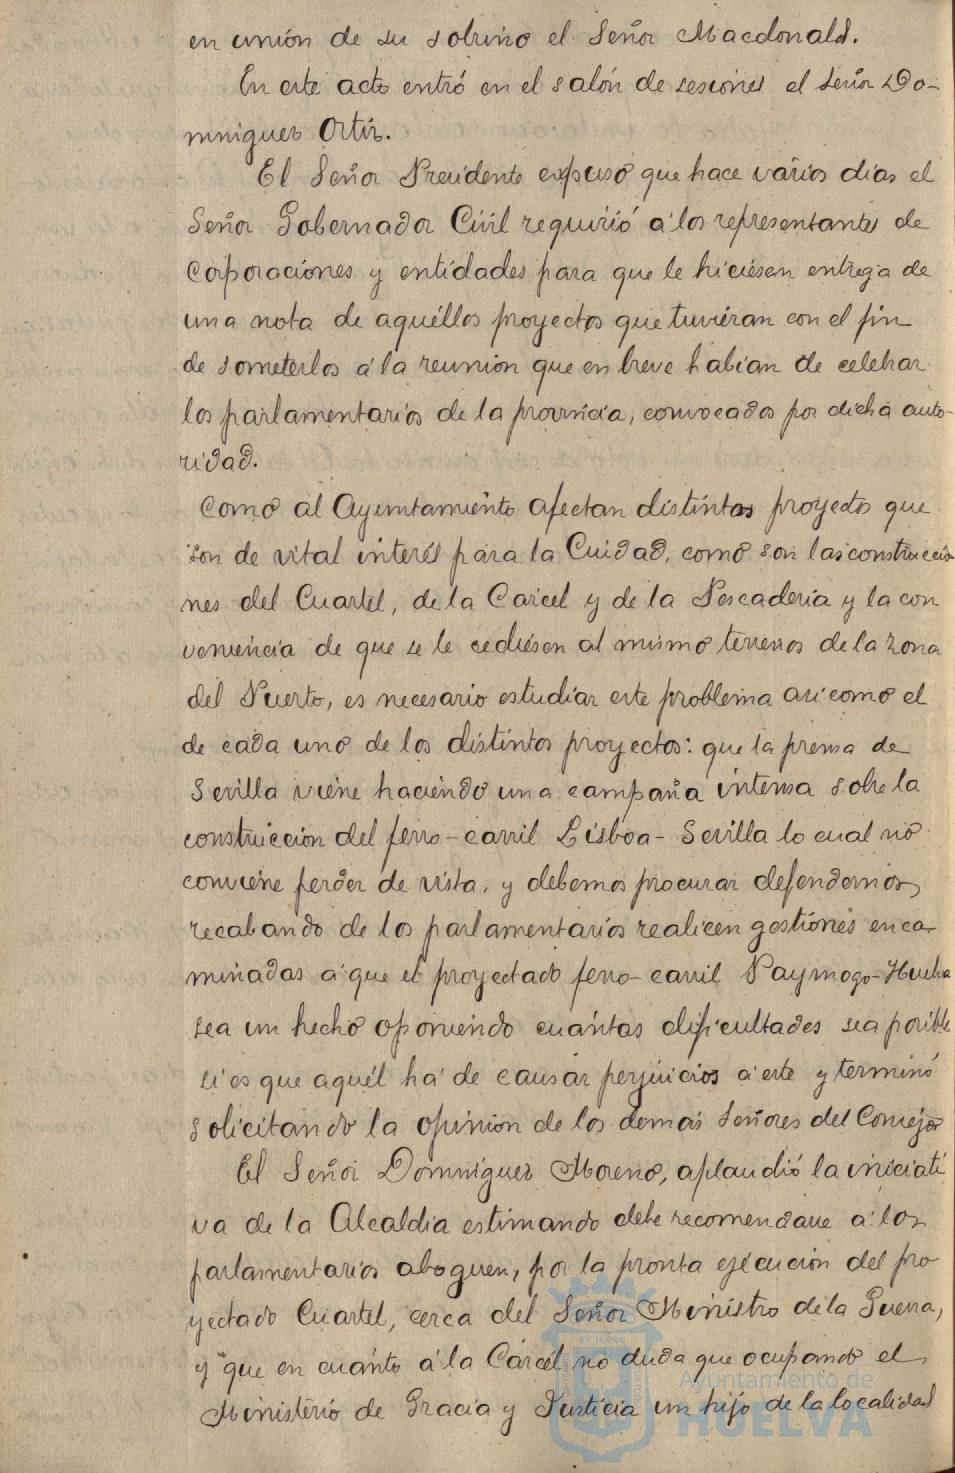 en unión de su sobrino el Señor Macdonald.
En este acto entró en el salón de sesiones el Señor Do-
minguez Ortiz.
El Señor Presidente expusó que hace varios dias el
Señor Gobernador Civil requirió á los representantes de
Corporaciones y entidades para que le hiciesen entrega de
una nota de aquéllos proyectos que tuviéran con el fin
de someterlos á la reunion que en breve habian de celebrar
los parlamentarios de la provincia, convocados por dicha auto-
ridad.
Como al Ayuntamiento afectan distintos proyectos que
son de vital interés para la Cuidad, como son las construccio
nes del Cuartel, de la Carcel y de la Pescaderia y la con
veniencia de que se le cediesen al mismo terrenos de la zona
del Puerto, es necesario estudiar este problema asi como el
de cada uno de los distintos proyectos: que la prensa de
Sevilla viene haciendo una campaña intensa sobre la
construccion del ferro-carril Lisboa-Sevilla lo cual no
conviene perder de vista, y debemos procurar defendernos,
recabando de los parlamentarios realicen gestiones enca-
minadas á que el proyectado ferro-carril Paymogo-Huelva
sea un hecho oponiendo cuántas dificultades sea posible
si es que aquél há de causar perjuicios á este y terminó
solicitando la opinion de los demás Señores del Concejo
El Señor Dominguez Moreno, aplaudió la iniciati
va de la Alcaldia estimando debe recomendarse á los
parlamentarios aboguen, por la pronta ejécución del pro
yectado Cuartel, cerca del Señor Ministro de la Guerra,
y que en cuánto á la Cárcel no duda que ocupando el
Ministério de Gracia y Justicia un hijo de la localidad
Ayuntamiento de
HUELVA